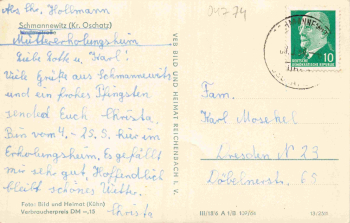 Schmannewitz (Kr. Oschatz)
Müttererholungsheim
Liebe Lotte u. Karl!
Viele Grüße aus Schmannewitz
und ein frohes Pfingsten
sendet Euch Christa.
Bin vom 4. - 25.9. hier im
Erholungsheim, Es gefällt
mir sehr gut, Hoffentlich
bleibt schönes Wetter.
Christa
Foto: Bild und Heimat (Kühn)
Verbraucherpreis DM -,15
VEB BILD UND HEIMAT REICHENBACH i. V.
DEUTSCHE
DEMOKRATISCHE REPUBLIK
10
Fam.
Karl
Dresden N 23
65